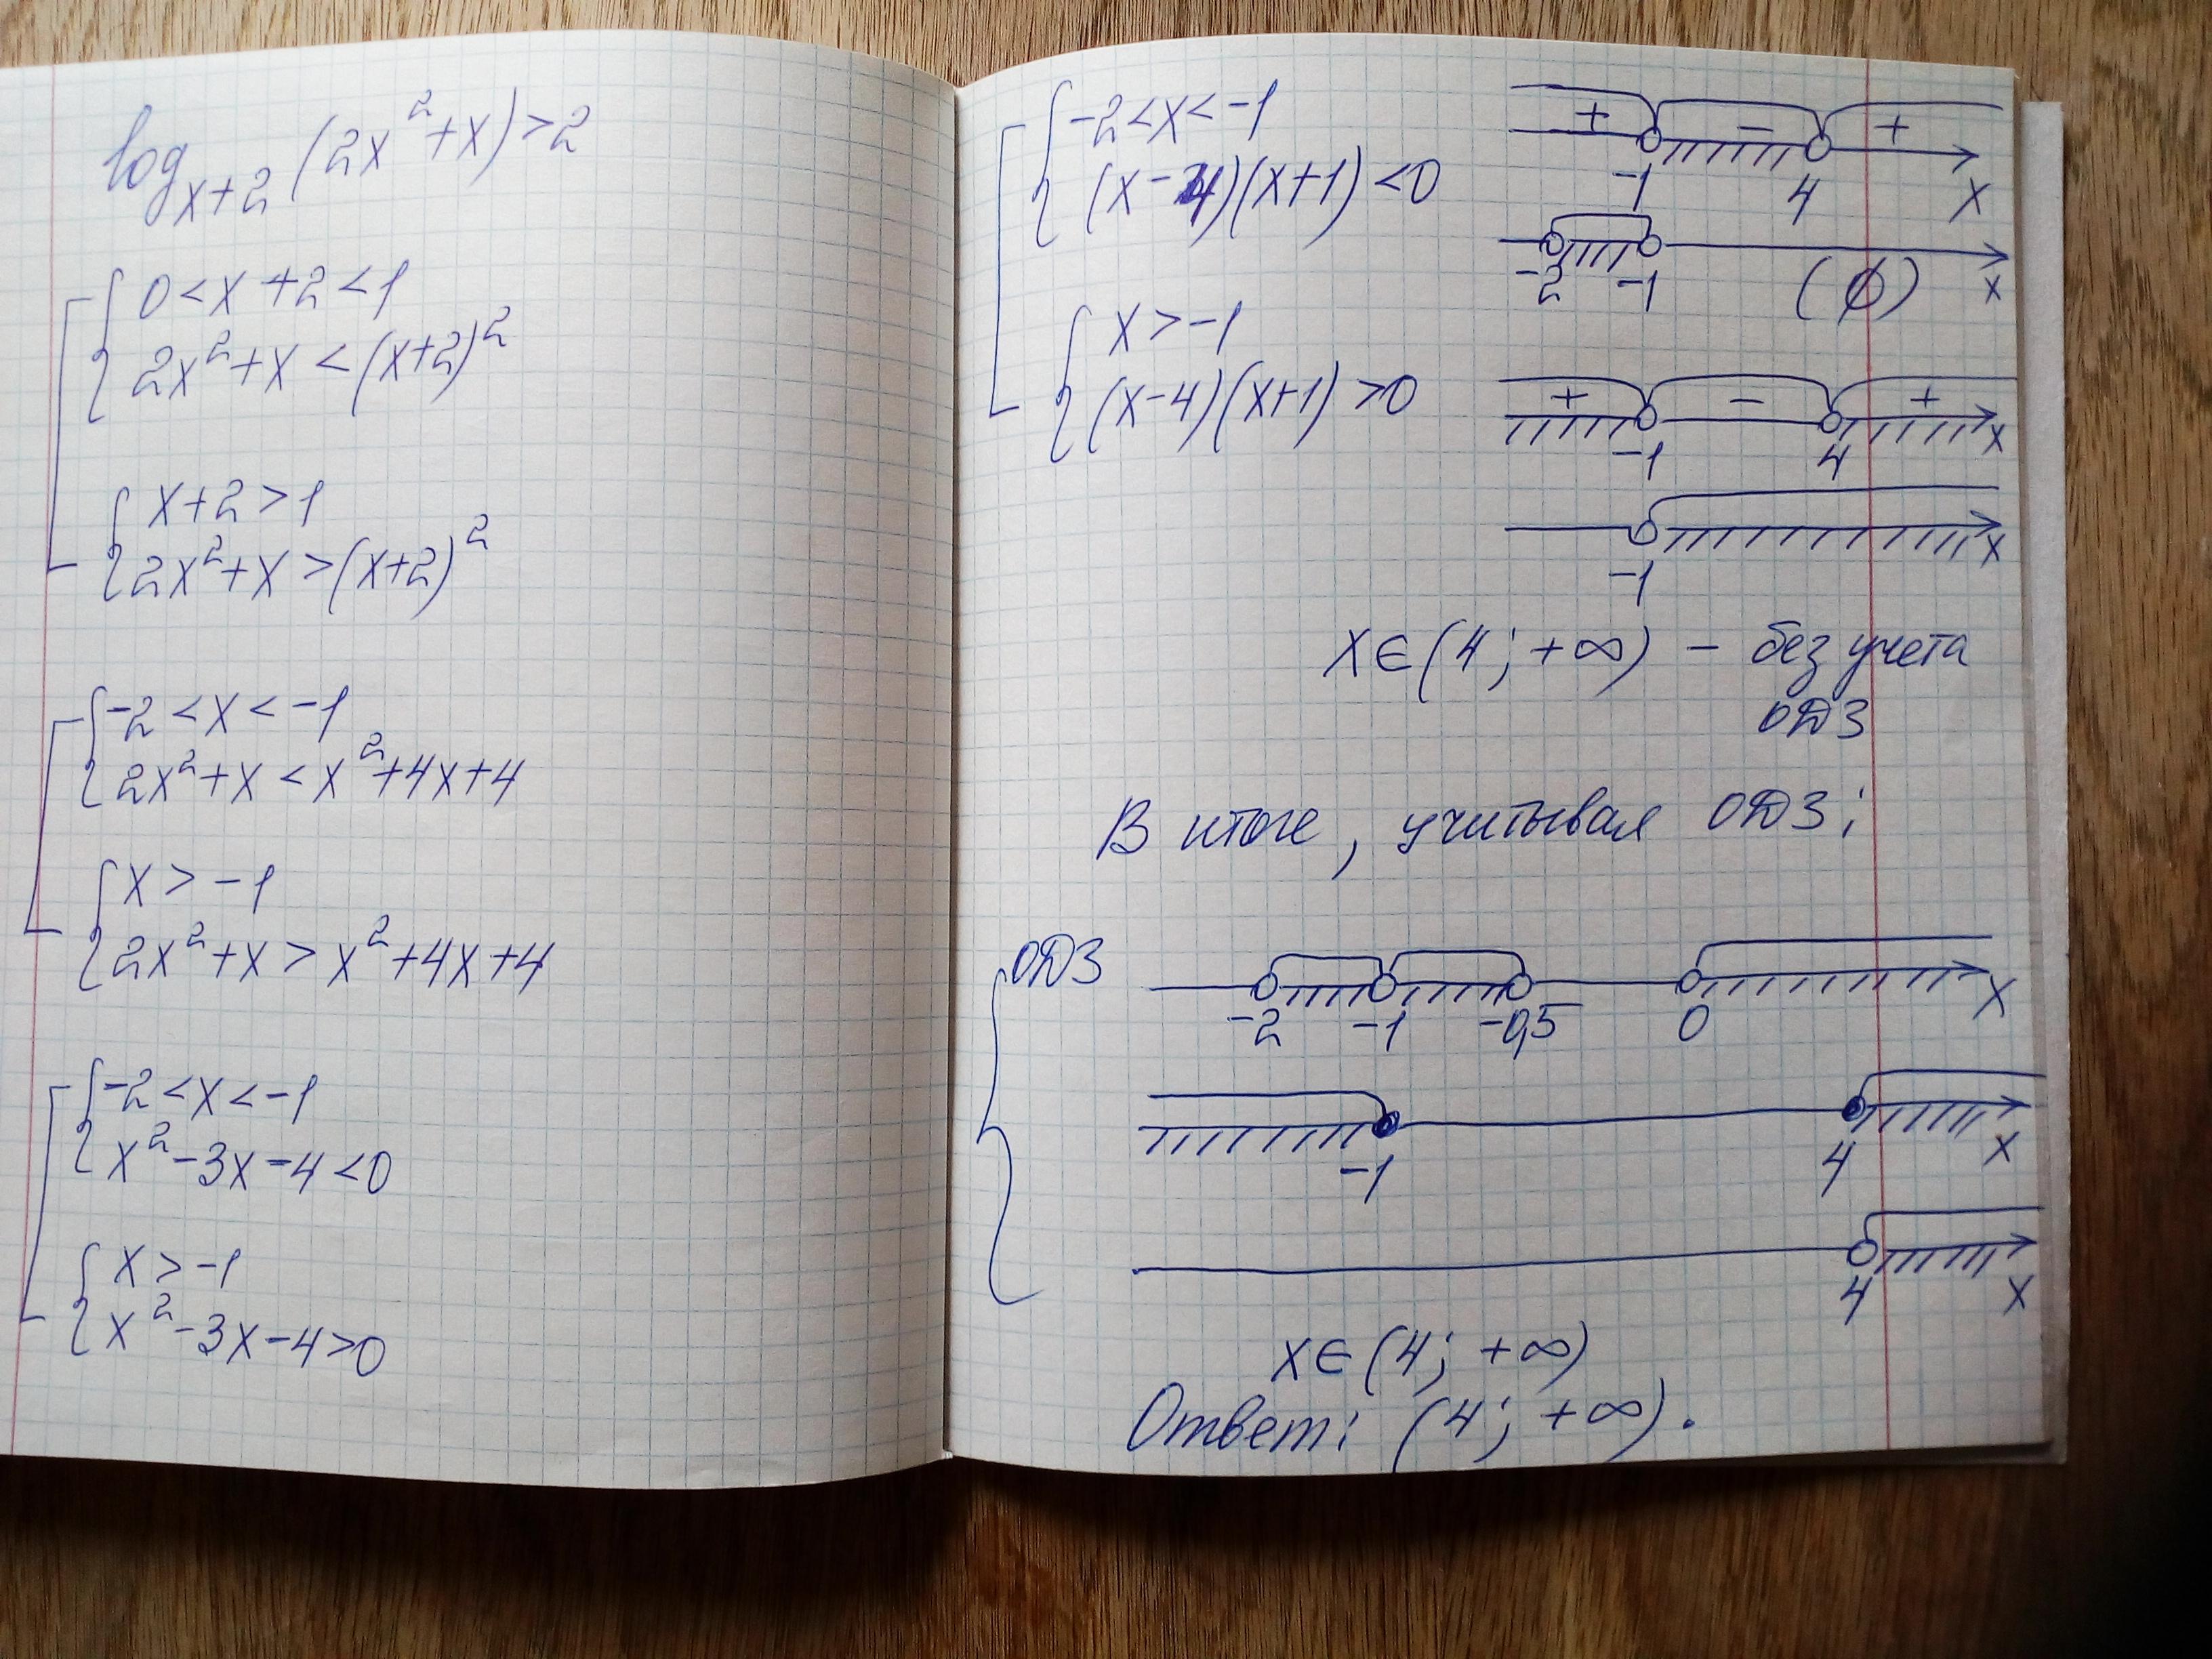 log_{x+2} (2x² + x) > 2
0 < x + 2 < 1
2x² + x < (x+2)²
x + 2 > 1
2x² + x > (x+2)²
-2 < x < -1
2x² + x < x² + 4x + 4
x > -1
2x² + x > x² + 4x + 4
-2 < x < -1
x² - 3x - 4 < 0
x > -1
x² - 3x - 4 > 0
-2 < x < -1
(x - 4)(x + 1) < 0
+ - +
-1 4 x
-2 -1 (∅) x
x > -1
(x - 4)(x + 1) > 0
+ - +
-1 4 x
-1 x
x ∈ (4; +∞) - без учета
ОДЗ
В итоге, учитывая ОДЗ:
ОДЗ
-2 -1 -0,5 0 x
-1 4 x
4 x
x ∈ (4; +∞)
Ответ: (4; +∞).